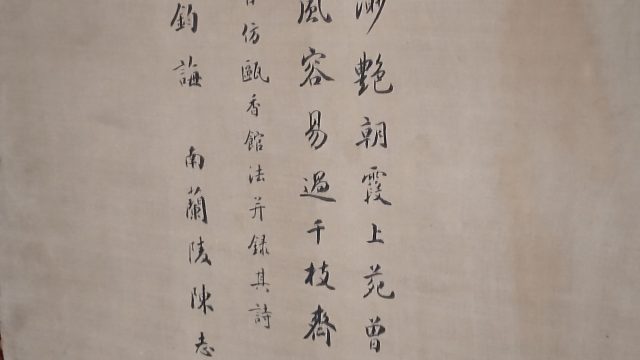 艷朝霞上苑曾
風容易過千枝齊
仿甌香館法并錄其詩
鈞誨 南蘭陵陳志